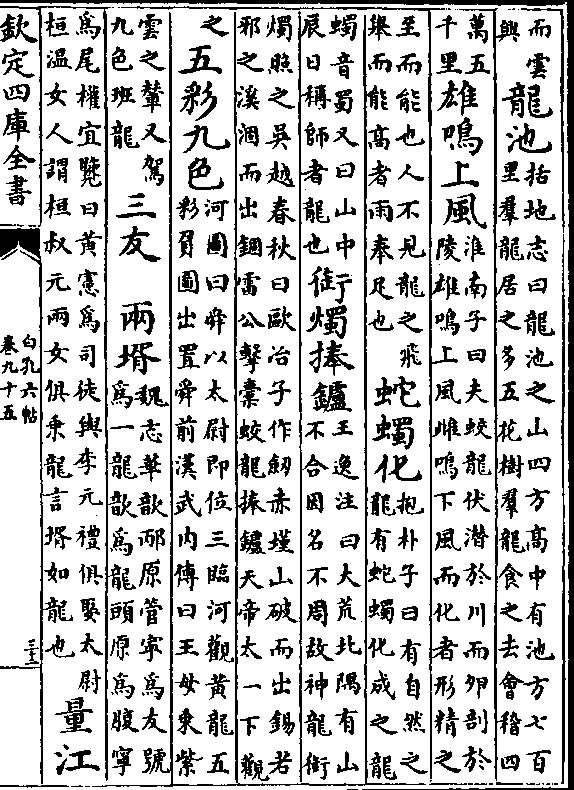 而雲
興
龍池
括地志曰龍池之山四方髙中有池方七百
里羣龍居之多五花樹羣龍食之去會稽四
萬五
千里
雄鳴上風
淮南子曰夫蛟龍伏潜於川而卵剖於
陵雄鳴上風雌鳴下風而化者形精之
至而能也人不見龍之飛
舉而能髙者雨奉足也
蛇蠋化
抱朴子曰有自然之
龍有蛇蠋化成之龍
蠋音蜀又曰山中
辰日稱師者龍也
銜燭捧鑪
王逸注曰大荒北隅有山
不合因名不周故神龍銜
燭照之吳越春秋曰歐冶子作劒赤堇山破而出錫若
邪之溪涸而出銅雷公擊橐蛟龍捧鑪天帝太一下觀
之
五彩九色
河圖曰舜以太尉即位三臨河觀黄龍五
彩負圖出置舜前漢武内傳曰王母乘紫
雲之輦又駕
九色班龍
三友
兩壻
魏志華歆邴原管寧為友號
為一龍歆為龍頭原為腹寧
為尾權宜覽曰黄憲為司徒與李元禮俱娶太尉
桓温女人謂桓叔元兩女俱乘龍言壻如龍也
量江
欽定四庫全書
白孔六帖
卷九十五